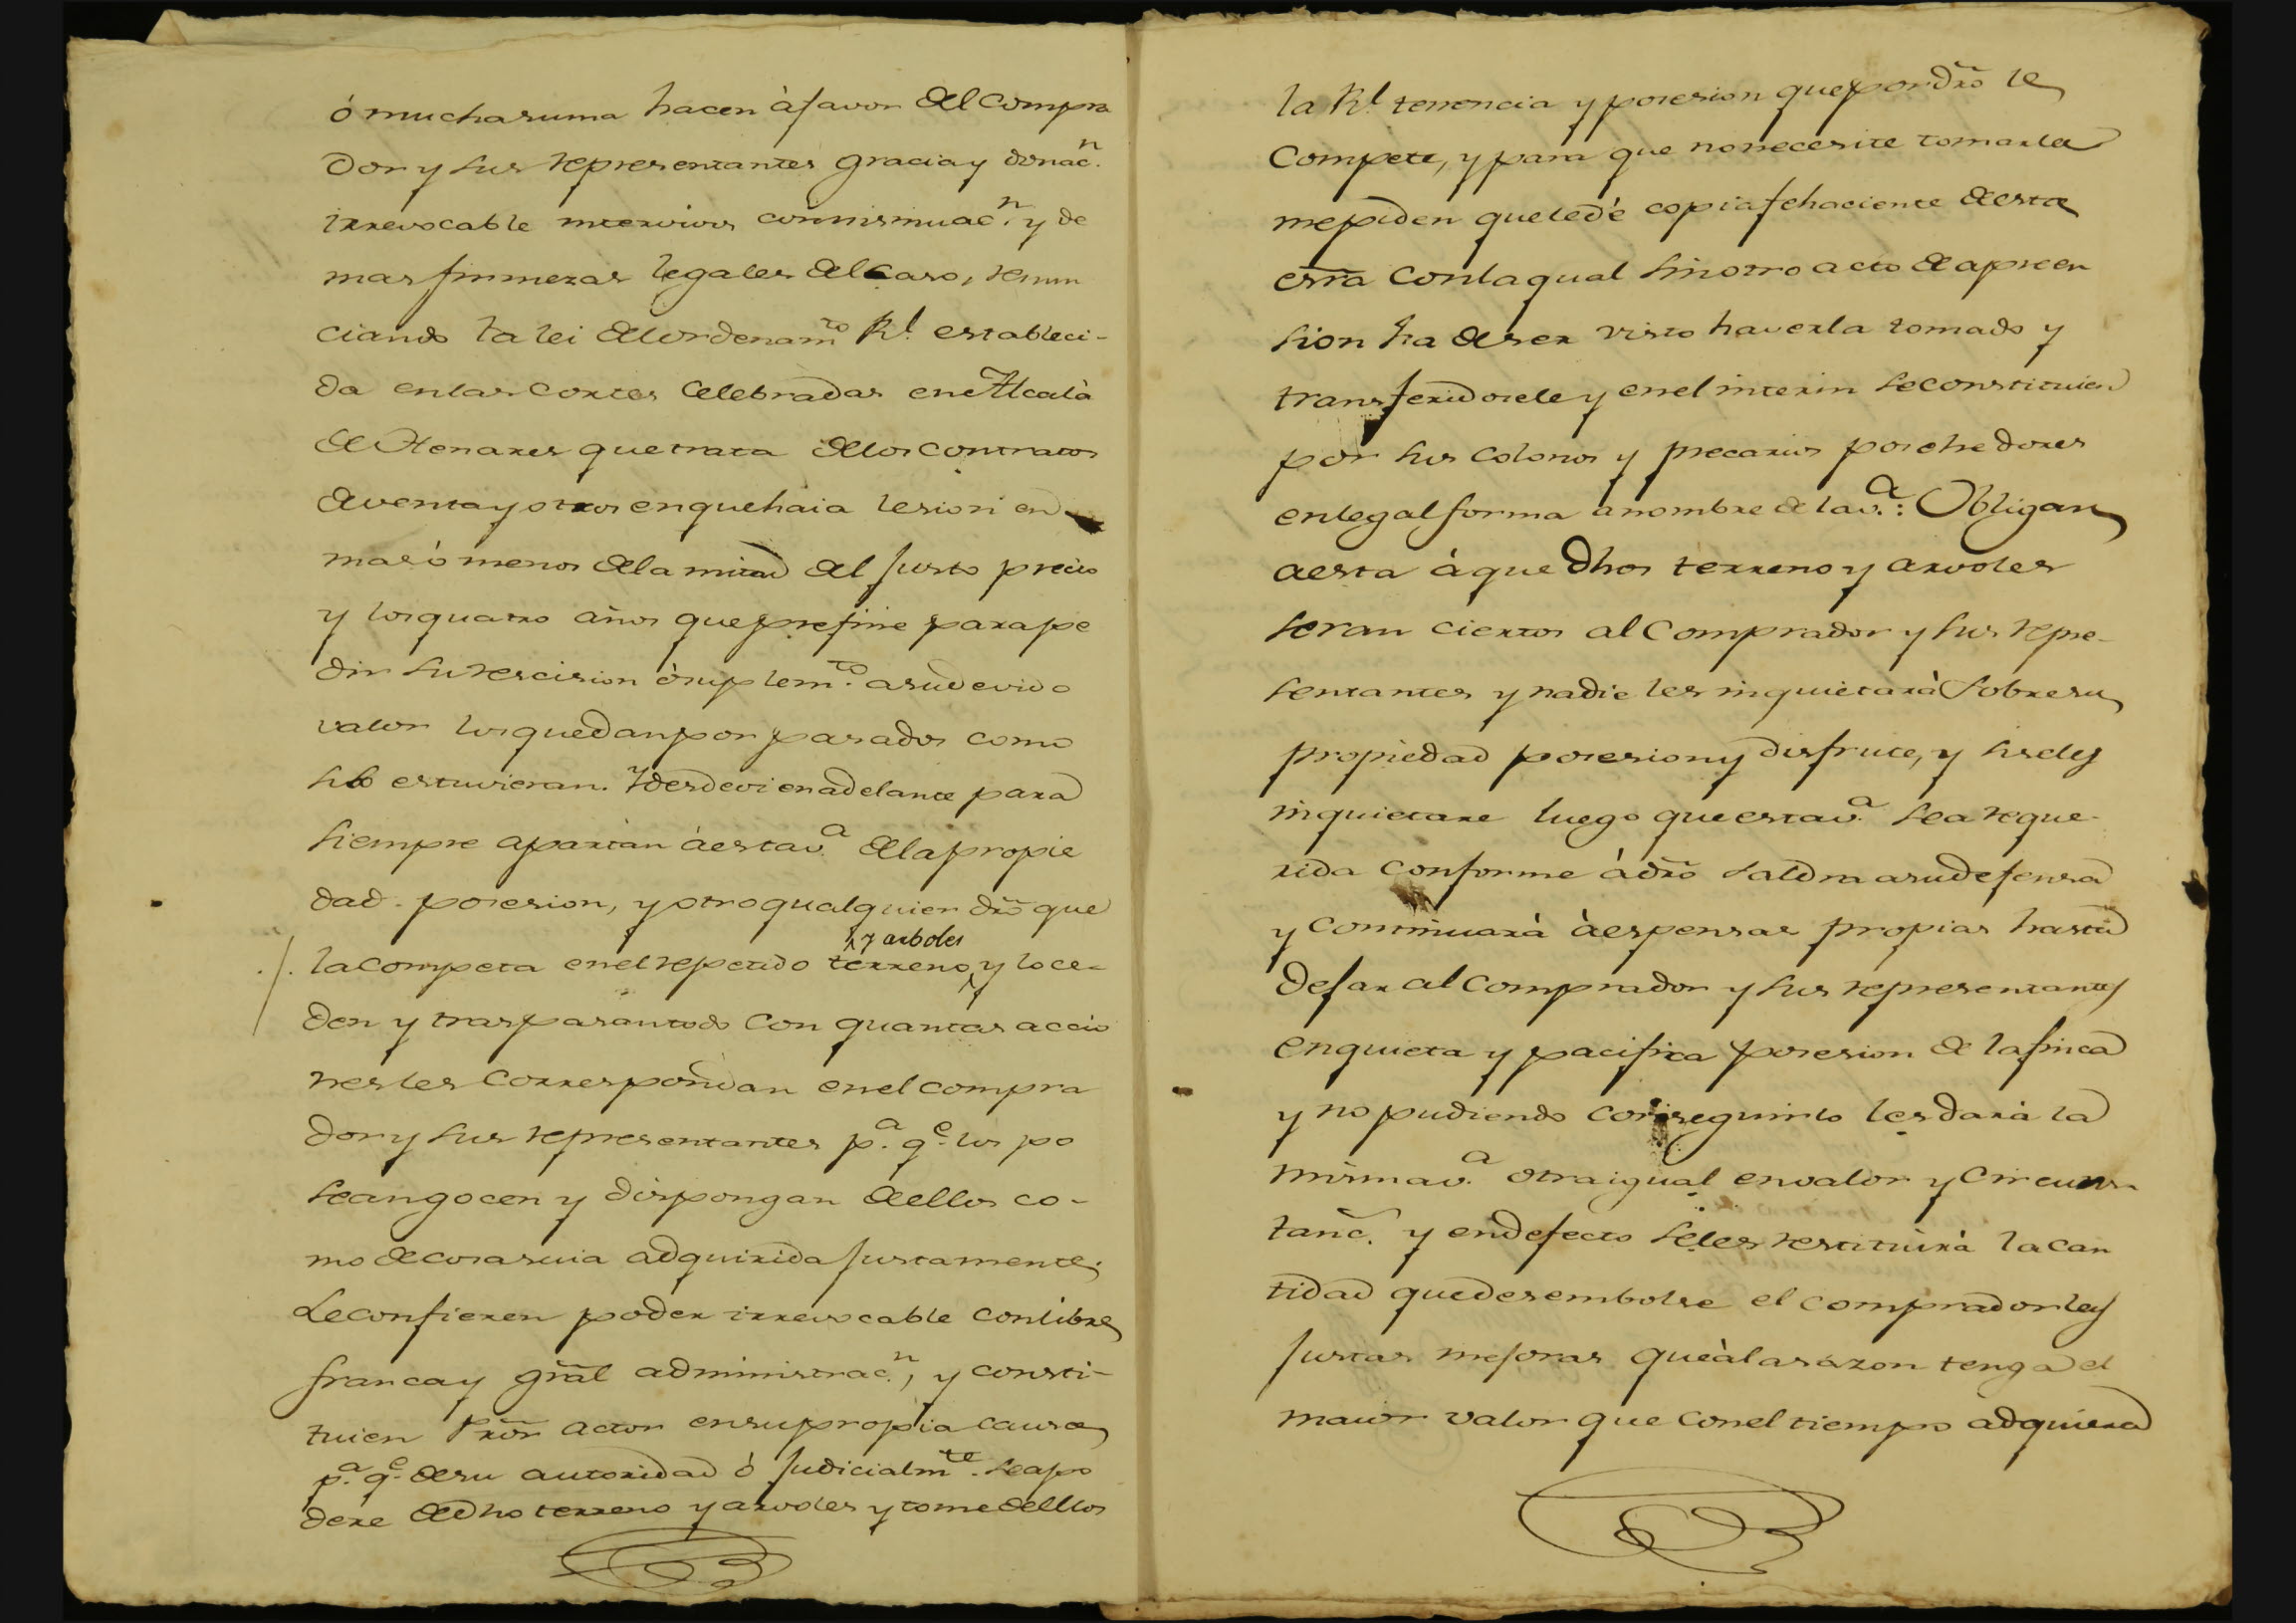 ó mucha suma hacen à favor del Compra
dor y sus representantes gracia y donac.n
irrevocable intervivos con insinuac.n y de
mas firmezas legales del caso, renun
ciando la lei del ordenam.to Rl. estableci-
da en las cortes celebradas en Alcalà
de Henares que trata de los contratos
de venta y otros en que haia lesion en
mas ò menos de la mitad del justo precio
y los quatro años que prefine para pe
dir su rescision ò suplem.to a su devido
valor los quedan por pasados como
si lo estuvieran. Y desde oi en adelante para
siempre apartan à esta v.a de la propie
dad. posesion, y otro qualquier dro que
y arboles
./. la competa en el repetido terreno, y lo ce-
den y traspasan todo con quantas accio
nes les correspondan en el compra
dor y sus representantes p.a q.e los po
sean gocen y dispongan de ellos co-
mo de cosa suia adquirida justamente;
Le confieren poder irrevocable con libre
franca y gral administrac.n, y consti-
tuien Pror actor en su propia causa
p.a q.e de su autoridad ó judicialm.te se apo
dere de dho terreno y arvoles y tome de ellos
la Rl. tenencia y posesion que por dro le
Compete, y para que no necesite tomarla
me piden que le dè copia fehaciente de esta
esra con la qual sin otro acto de apreen
sion ha de ser visto haverla tomado y
transferidosele y en el interin se constituien
por sus colonos y precarios posehedores
en legal forma a nombre de la v.a: Obligan
a esta à que dhos terreno y arvoles
seran ciertos al Comprador y sus repre-
sentantes y nadie les inquietarà sobre su
propiedad posesion y disfrute, y si se les
inquietare luego que esta v.a sea reque-
rida conforme à dro saldra a su defensa
y continuarà à espensas propias hasta
dejar al comprador y sus representantes
en quieta y pacifica posesion de la finca
y no pudiendo conseguirlo les darà la
misma v.a otra igual en valor y circuns-
tanc. y en defecto se les restituirà la can
tidad que desembolse el comprador las
justas mejoras que à la sazon tenga el
maior valor que con el tiempo adquiera